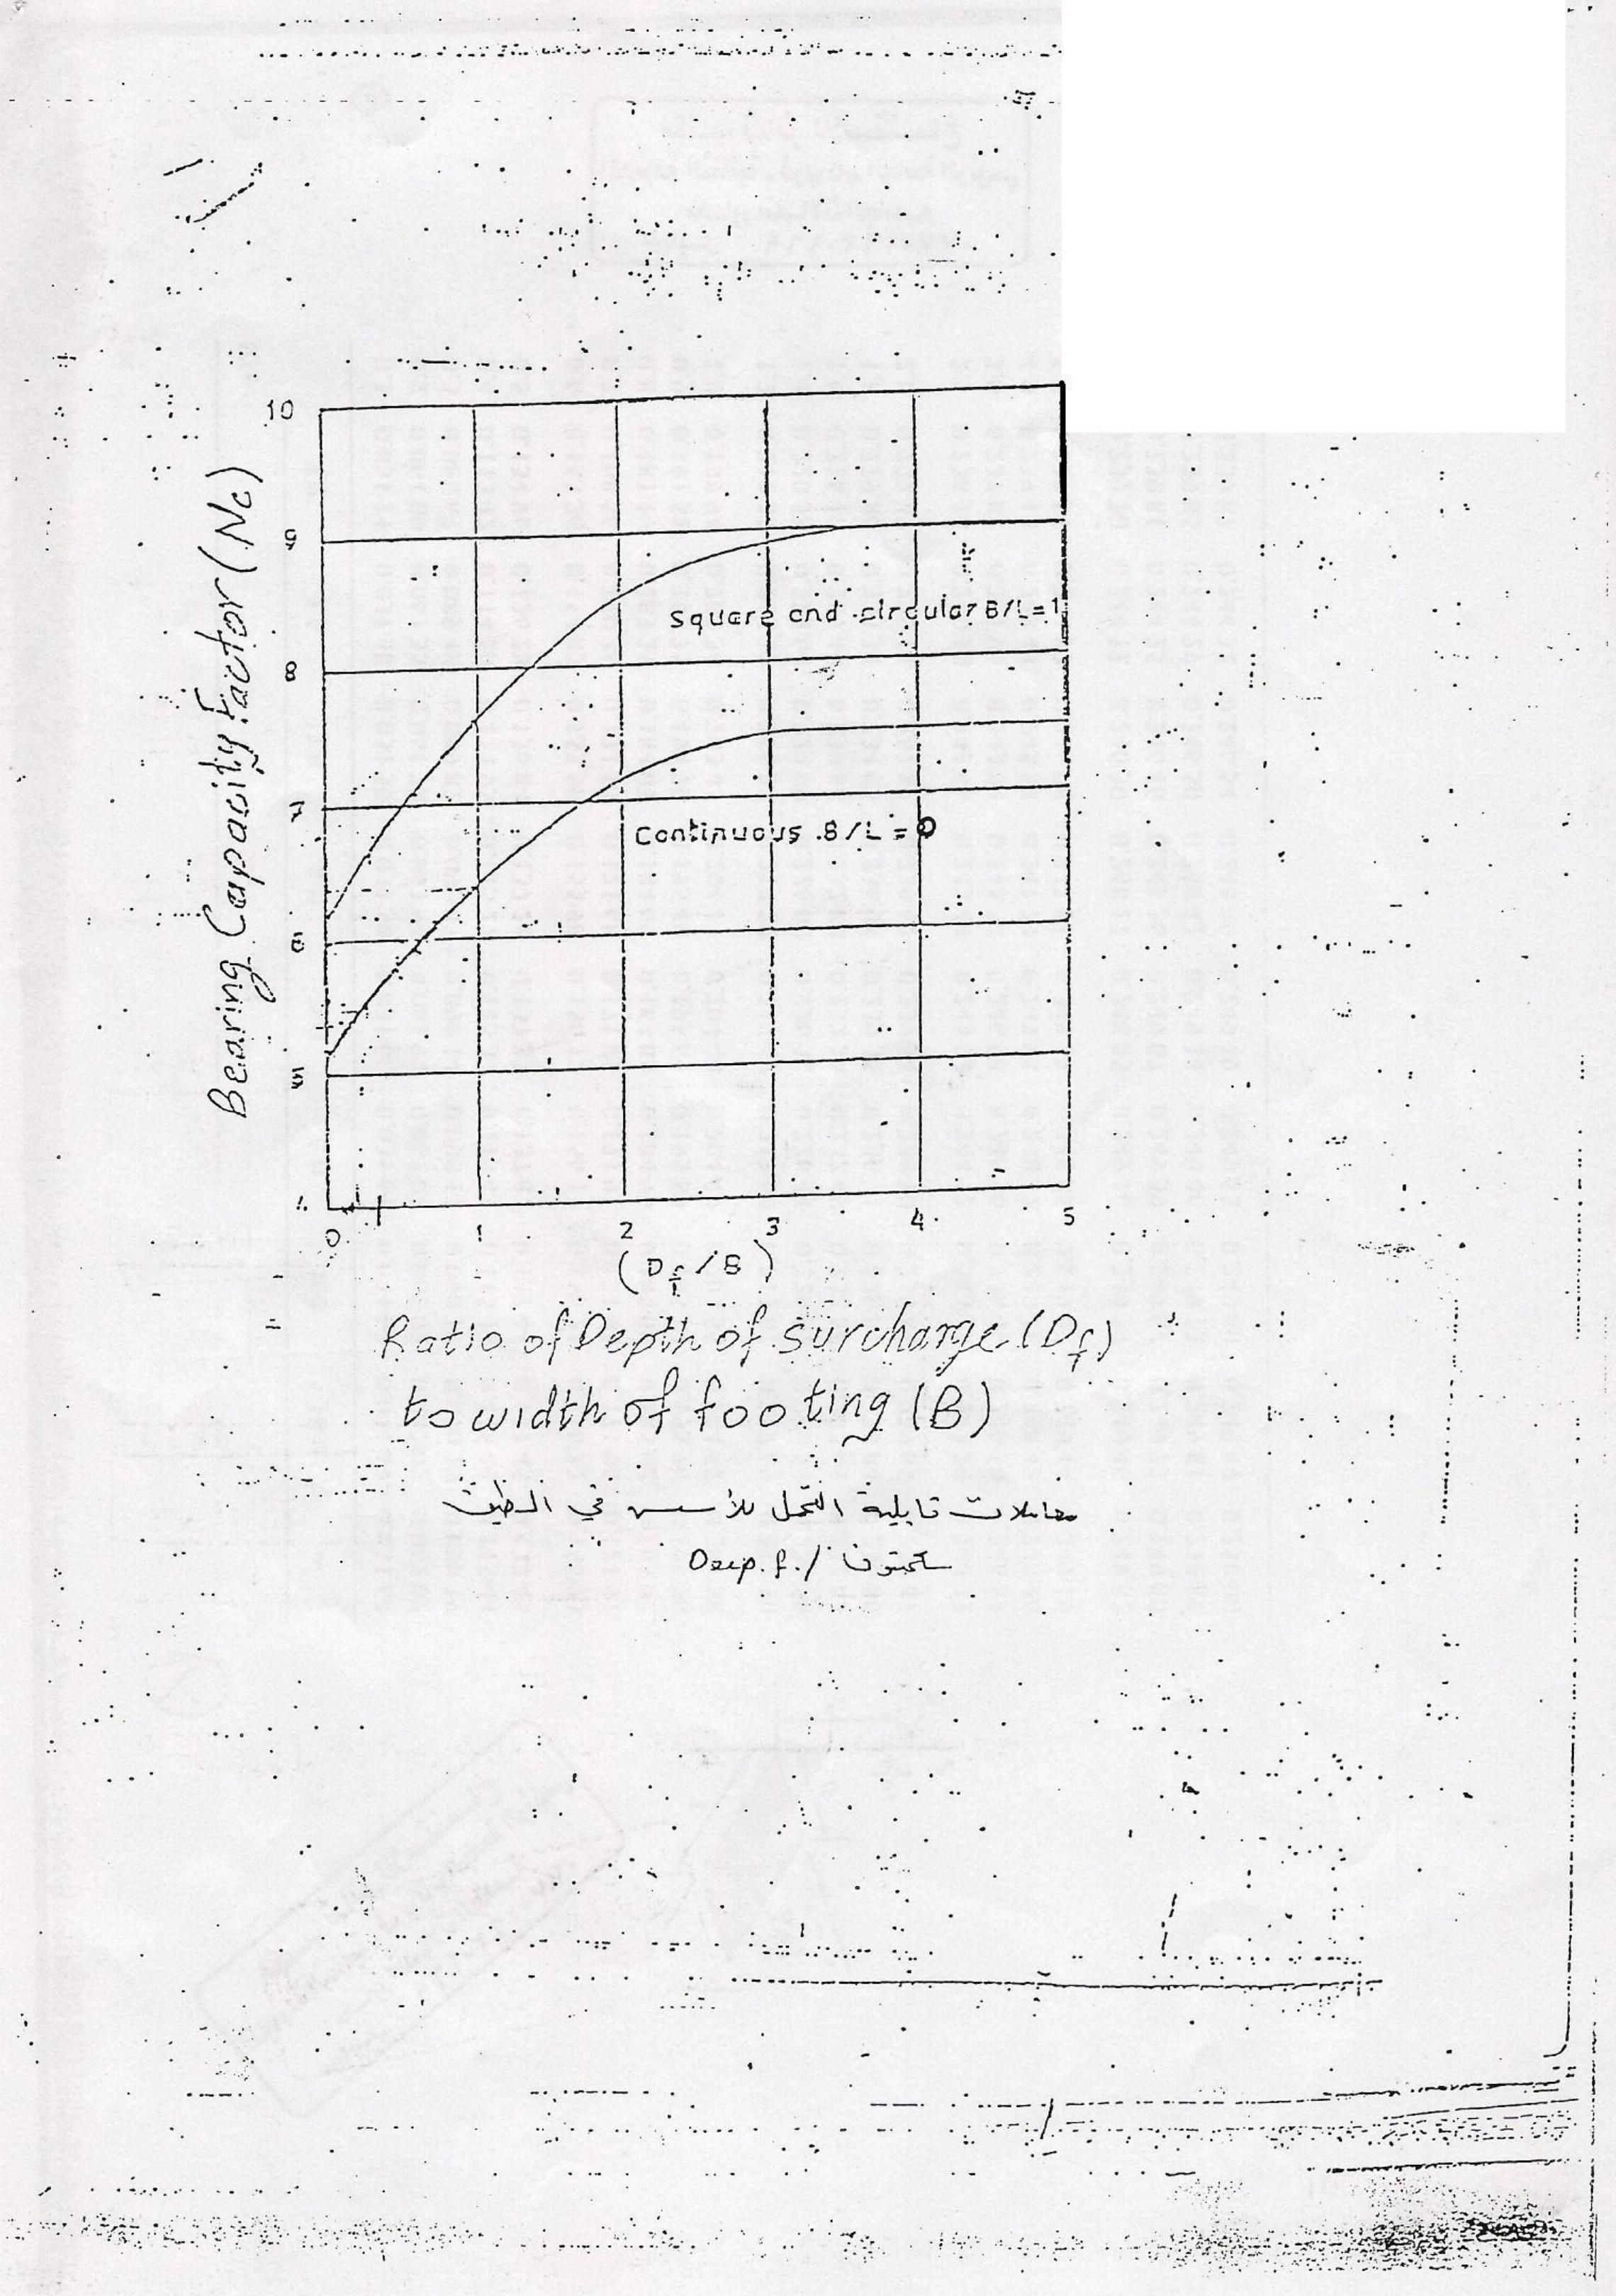 10
9
8
7
6
5
4
Bearing Capacity Factor (Nc)
Square and circular B/L=1
Continuous B/L = 0
0 1 2 3 4 5
(Df/B)
Ratio of Depth of surcharge (Df)
to width of footing (B)
معاملات قابلية التحمل للأسس في الطين
Deep. f. / سكمبتون